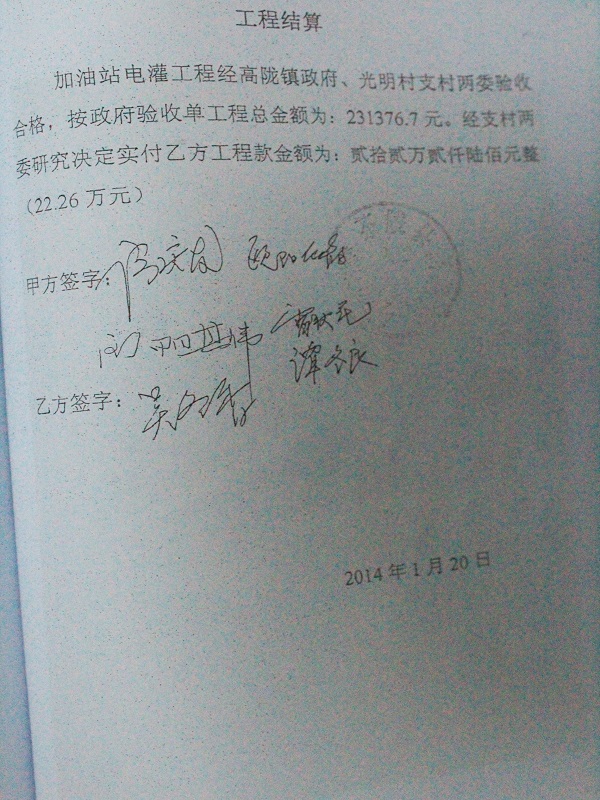 工程结算
加油站电灌工程经高陇镇政府、光明村支村两委验收
合格，按政府验收单工程总金额为：231376.7元。经支村两
委研究决定实付乙方工程款金额为：贰拾贰万贰仟陆佰元整
（22.26万元）
甲方签字：
乙方签字：
2014年1月20日